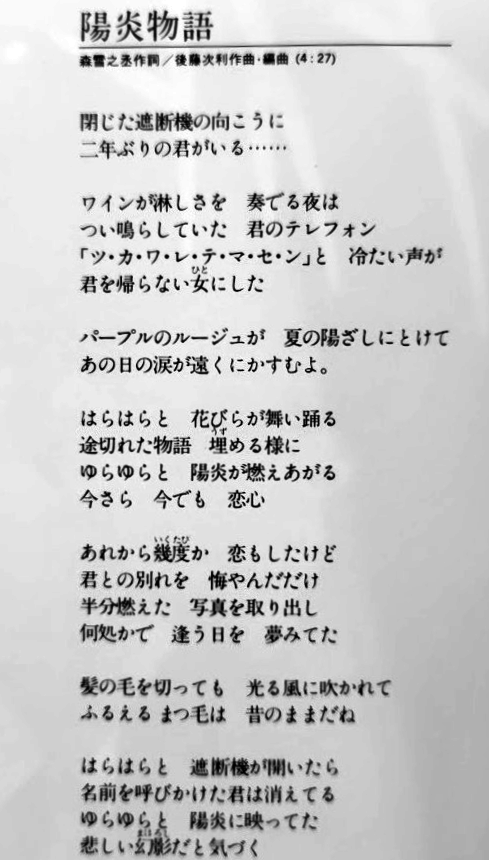 陽炎物語
森雪之丞作詞／後藤次利作曲・編曲 (4:27)
閉じた遮断機の向こうに
二年ぶりの君がいる……
ワインが淋しさを 奏でる夜は
つい鳴らしていた 君のテレフォン
「ツ・カ・ワ・レ・テ・マ・セ・ン」と 冷たい声が
ひと
君を帰らない女にした
パープルのルージュが 夏の陽ざしにとけて
あの日の涙が遠くにかすむよ。
はらはらと 花びらが舞い踊る
うず
途切れた物語 埋める様に
ゆらゆらと 陽炎が燃えあがる
今さら 今でも 恋心
いくたび
あれから幾度か 恋もしたけど
君との別れを 悔やんだだけ
半分燃えた 写真を取り出し
何処かで 逢う日を 夢みてた
髪の毛を切っても 光る風に吹かれて
ふるえる まつ毛は 昔のままだね
はらはらと 遮断機が開いたら
名前を呼びかけた君は消えてる
ゆらゆらと 陽炎に映ってた
まぼろし
悲しい幻影だと気づく